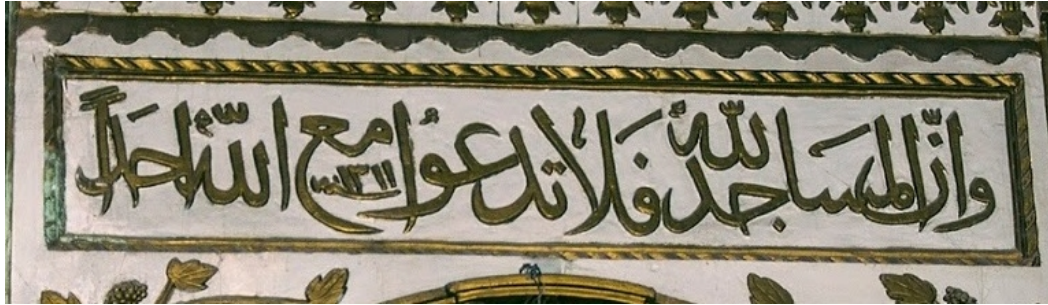 وانّ المساجد لله فلا تدعوا مع الله احداً
١٣١١